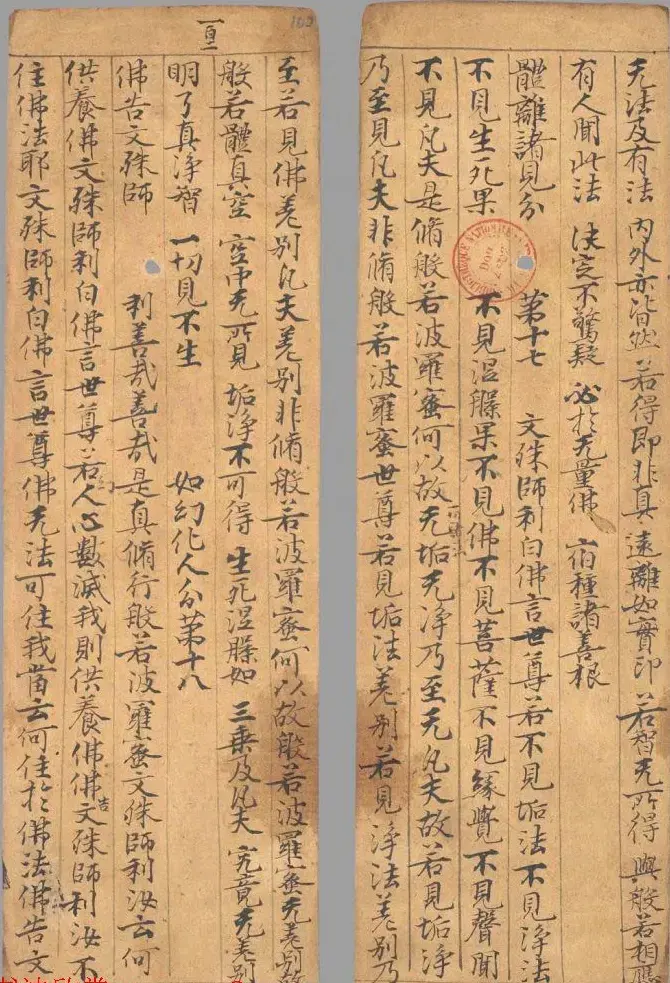 无法及有法 内外亦皆然 若得即非真 遠離如實印 若智无所得 與般若相應
有人聞此法 決定不驚疑 必於无量佛 宿種諸善根
體離諸見分 第十七 文殊師利白佛言世尊若不見垢法不見淨法
不見生死果 不見涅槃果不見佛不見菩薩不見緣覺不見聲聞
不見凡夫是脩般若波羅蜜何以故无垢无淨乃至无凡夫故若見垢淨
乃至見凡夫非脩般若波羅蜜世尊若見垢法差別若見淨法差別乃
一百二
162
至若見佛差別凡夫差別非脩般若波羅蜜何以故般若波羅蜜无差別故
般若體真空 空中无所見 垢淨不可得 生死涅槃如 三乘及凡夫 究竟无差別
明了真淨智 一切見不生 如幻化人分第十八
佛告文殊師 利善哉善哉是真脩行般若波羅蜜文殊師利汝云何
供養佛文殊師利白佛言世尊若人心數滅我則供養佛佛告文殊師利汝不
住佛法耶文殊師利白佛言世尊佛无法可住我當云何住於佛法佛告文